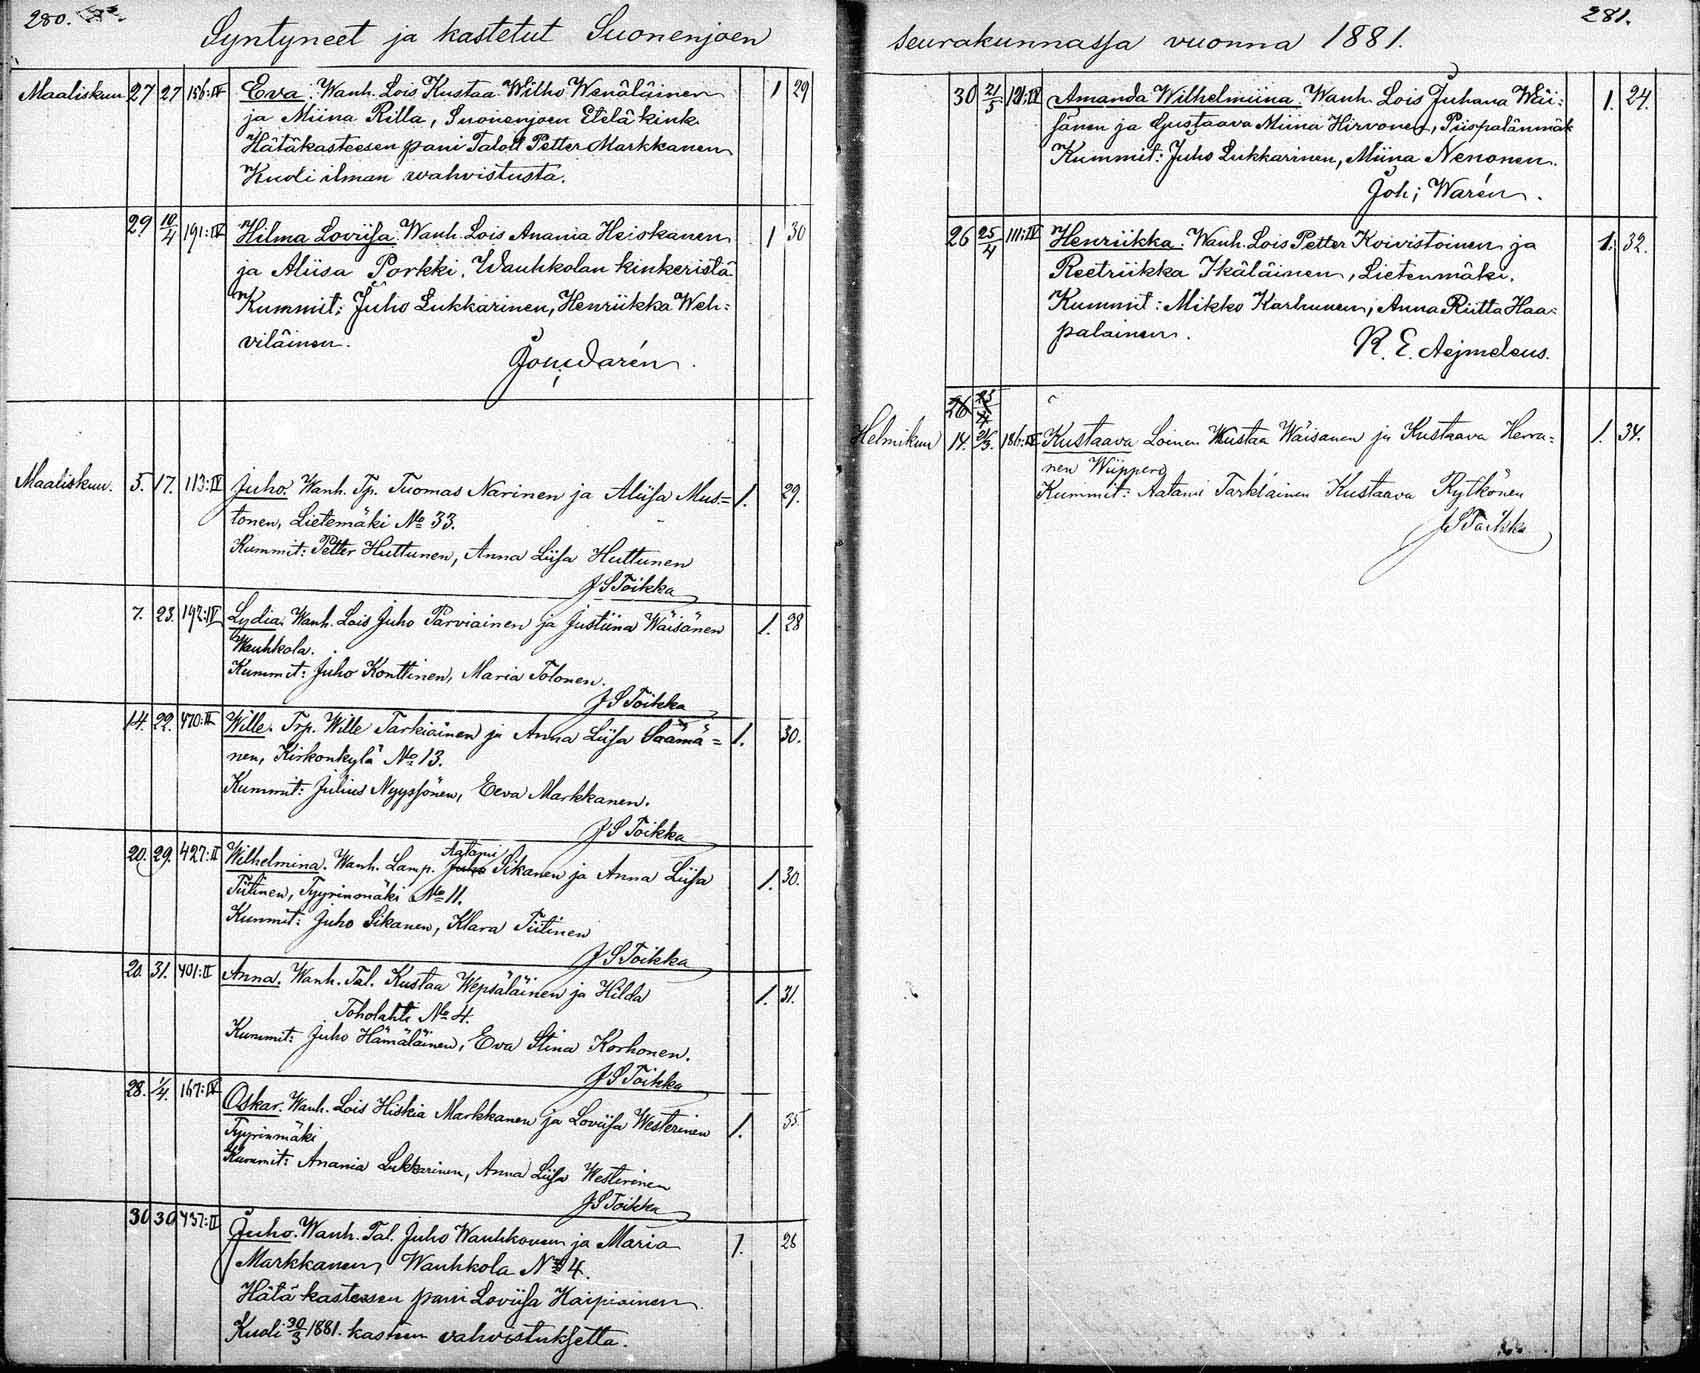 280.
Syntyneet ja kastetut Suonenjoen
Maaliskuu 27 27 156:IV Eva. Wanh. Lois Kustaa Wilho Wenäläinen 1 29
ja Miina Rilla, Suonenjoen Etelä kink.
Hätäkasteesen pani Taloll Petter Markkanen
Kuoli ilman wahvistusta.
29 10/4 191:IV Hilma Loviisa. Wanh. Lois Anania Heiskanen 1 30
ja Aliisa Porkki. Wauhkolan kinkeristä
Kummit: Juho Lukkarinen, Henriikka Weh=
viläinen.
Joh; Warén.
Maaliskuu. 5. 17. 113:IV Juho. Wanh. Tp. Tuomas Narinen ja Aliisa Mus= 1. 29.
tonen, Lietemäki No 33.
Kummit: Petter Huttunen, Anna Liisa Huttunen
J S Toikka
7. 23. 192:IV Lydia. Wanh. Lois Juho Parviainen ja Justiina Wäisänen 1. 28
Wauhkola.
Kummit: Juho Konttinen, Maria Tolonen.
J S Toikka
14. 22. 470:II Wille. Trp. Wille Tarkiainen ja Anna Liisa Saamä= 1. 30.
nen, Kirkonkylä No 13.
Kummit: Julius Nyyssönen, Eeva Markkanen.
J S Toikka
20. 29. 427:II Wilhelmina. Wanh. Lamp. Juho Aatami Sikanen ja Anna Liisa 1. 30.
Tiitinen, Tyyrinmäki No 11.
Kummit: Juho Sikanen, Klara Tiitinen
J S Toikka
20. 31. 401:II Anna. Wanh. Tal. Kustaa Wepsäläinen ja Hilda 1. 31.
Toholahti No 4.
Kummit: Juho Hämäläinen, Eva Stina Korhonen.
J S Toikka
28. 1/4. 167:IV Oskar. Wanh. Lois Hiskia Markkanen ja Loviisa Westerinen 1. 35.
Tyyrinmäki
Kummit: Anania Lukkarinen, Anna Liisa Westerinen
J S Toikka
30 30 437:II Juho. Wanh. Tal. Juho Wauhkonen ja Maria 1. 26
Markkanen, Wauhkola No 4.
Hätä kasteesen pani Loviisa Kaipiainen.
Kuoli 30/3 1881. kasteen vahvistuksetta.
281.
seurakunnassa vuonna 1881.
30 21/5 121:IV Amanda Wilhelmiina. Wanh. Lois Juhana Wäi= 1. 24.
sänen ja Gustaava Miina Hirvonen, Piispalänmäk
Kummit: Juho Lukkarinen, Miina Nenonen.
Joh; Warén.
26 25/4 111:IV Henriikka. Wanh. Lois Petter Koivistoinen ja 1. 32.
Reetriikka Ikäläinen, Lietenmäki.
Kummit: Mikko Karhunen, Anna Riitta Haa=
palainen.
R. E. Aejmeleus.
26 25/4
Helmikuu 14. 2/3. 186:IV Kustaava Loinen Kustaa Wäisänen ja Kustaava Herra= 1. 34.
nen Wiippero
Kummit: Aatami Tarkiainen Kustaava Rytkönen
J S Toikka